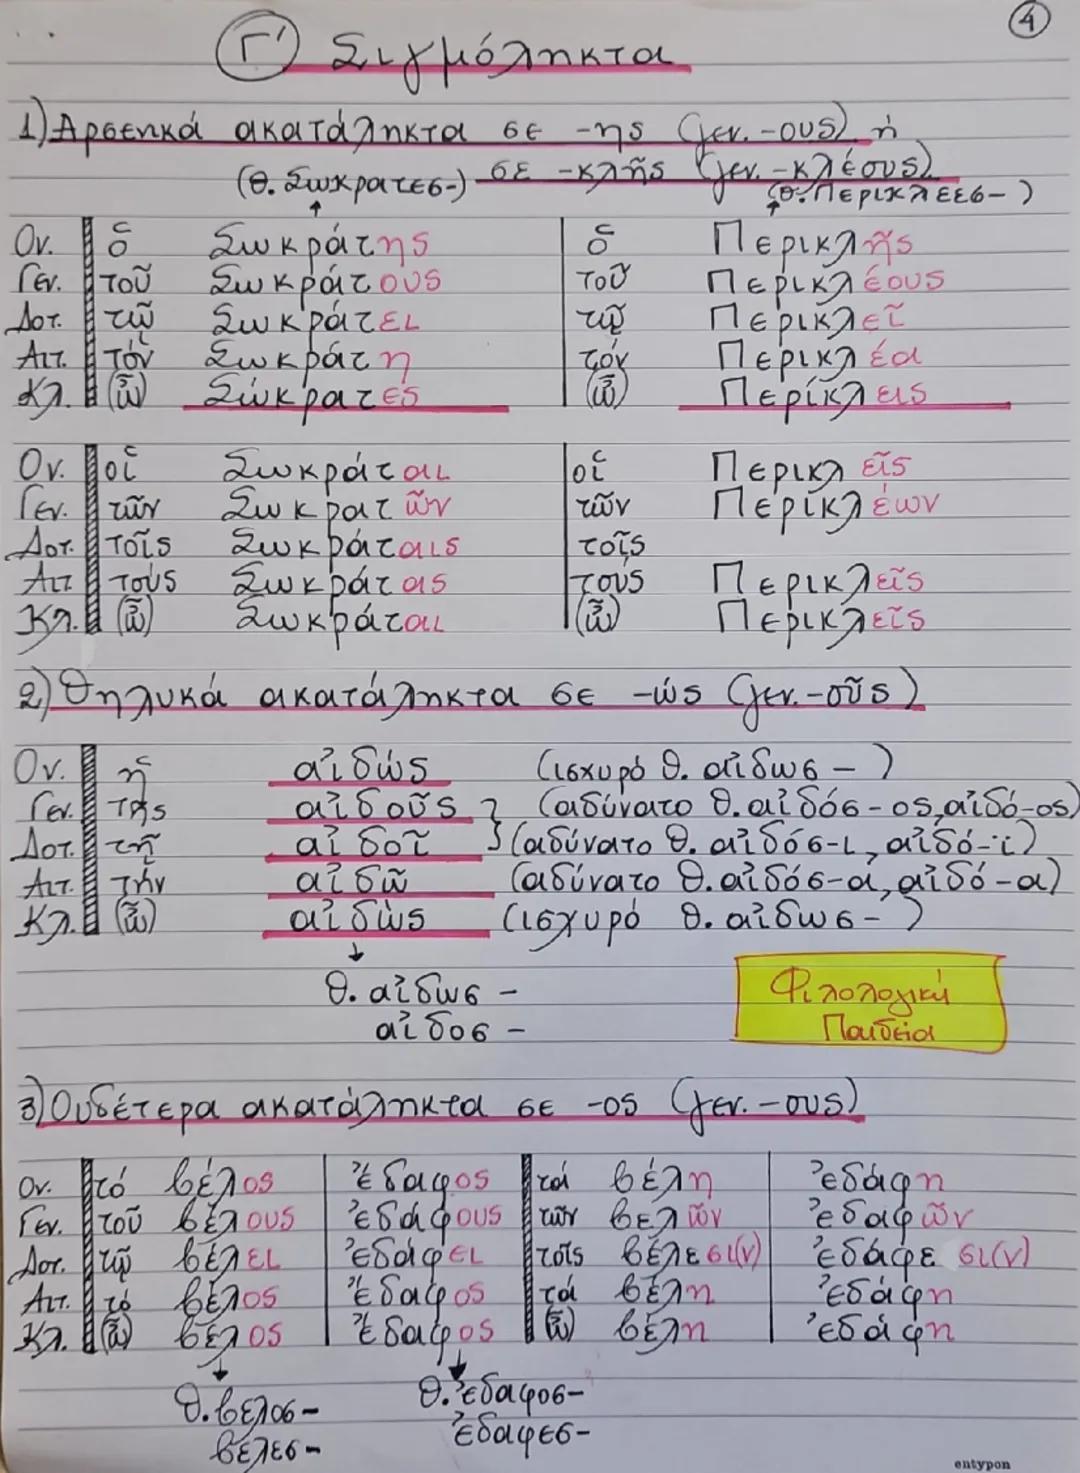 4
Γ' Σιγμόληκτα
1) Αρσενικά ακατάληκτα σε -ης (γεν. -ους) ή
(θ. Σωκρατεσ-) σε -κλῆς (γεν. -κλέους)
(θ. Περικλεεσ-)
Ον. ὁ Σωκράτης ὁ Περικλῆς
Γεν. τοῦ Σωκράτους τοῦ Περικλέους
Δοτ. τῷ Σωκράτει τῷ Περικλεῖ
Αιτ. τόν Σωκράτη τόν Περικλέα
Κλ. (ὦ) Σώκρατες (ὦ) Περίκλεις
Ον. οἱ Σωκράται οἱ Περικλεῖς
Γεν. τῶν Σωκρατῶν τῶν Περικλέων
Δοτ. τοῖς Σωκράταις τοῖς
Αιτ. τούς Σωκράτας τούς Περικλεῖς
Κλ. (ὦ) Σωκράται (ὦ) Περικλεῖς
2) Θηλυκά ακατάληκτα σε -ώς (γεν. -οῦς)
Ον. ἡ αἰδώς (ισχυρό θ. αἰδωσ-)
Γεν. τῆς αἰδοῦς (αδύνατο θ. αἰδόσ-ος, αἰδό-ος)
Δοτ. τῇ αἰδοῖ (αδύνατο θ. αἰδόσ-ι, αἰδό-ϊ)
Αιτ. τήν αἰδῶ (αδύνατο θ. αἰδόσ-α, αἰδό-α)
Κλ. (ὦ) αἰδὼς (ισχυρό θ. αἰδωσ-)
θ. αἰδωσ-
αἰδοσ-
Φιλολογική
Παιδεία
3) Ουδέτερα ακατάληκτα σε -ος (γεν. -ους)
Ον. τό βέλος ἔδαφος τά βέλη ἐδάφη
Γεν. τοῦ βέλους ἐδάφους τῶν βελῶν ἐδαφῶν
Δοτ. τῷ βέλει ἐδάφει τοῖς βέλεσι(ν) ἐδάφεσι(ν)
Αιτ. τό βέλος ἔδαφος τά βέλη ἐδάφη
Κλ. (ὦ) βέλος ἔδαφος (ὦ) βέλη ἐδάφη
θ. βελοσ- θ. ἐδαφοσ-
βελεσ- ἐδαφεσ-
entypon